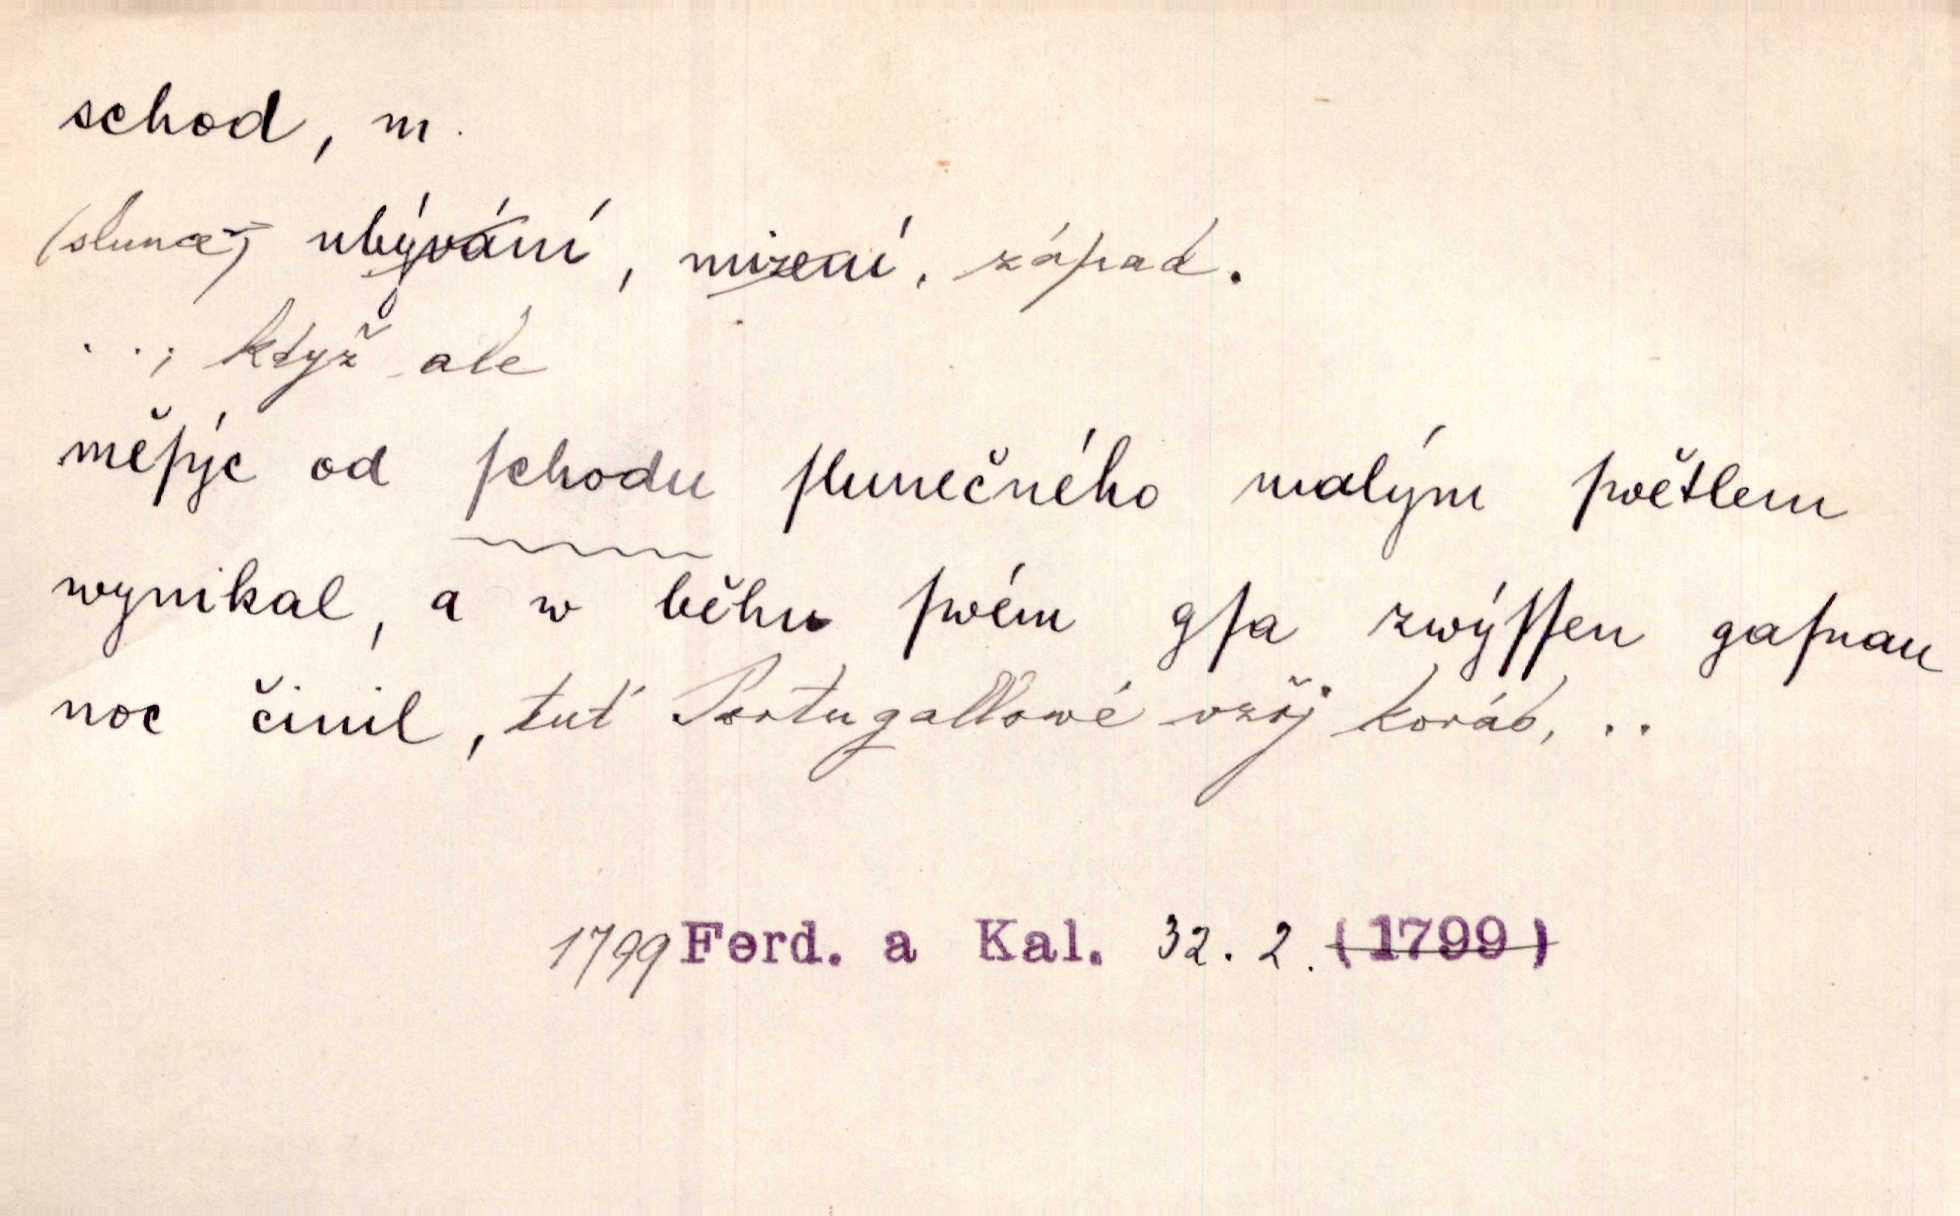 schod, m.
(slunce) ubývání, mizení, západ.
..; když ale
měſýc od ſchodu ſlunečného malým ſwětlem
wynikal, a w běhu ſwém gſa zwýſſen gaſnau
noc činil, tuť Portugallowé vzřj koráb, ..
1799 Ferd. a Kal. 32. 2. (1799)